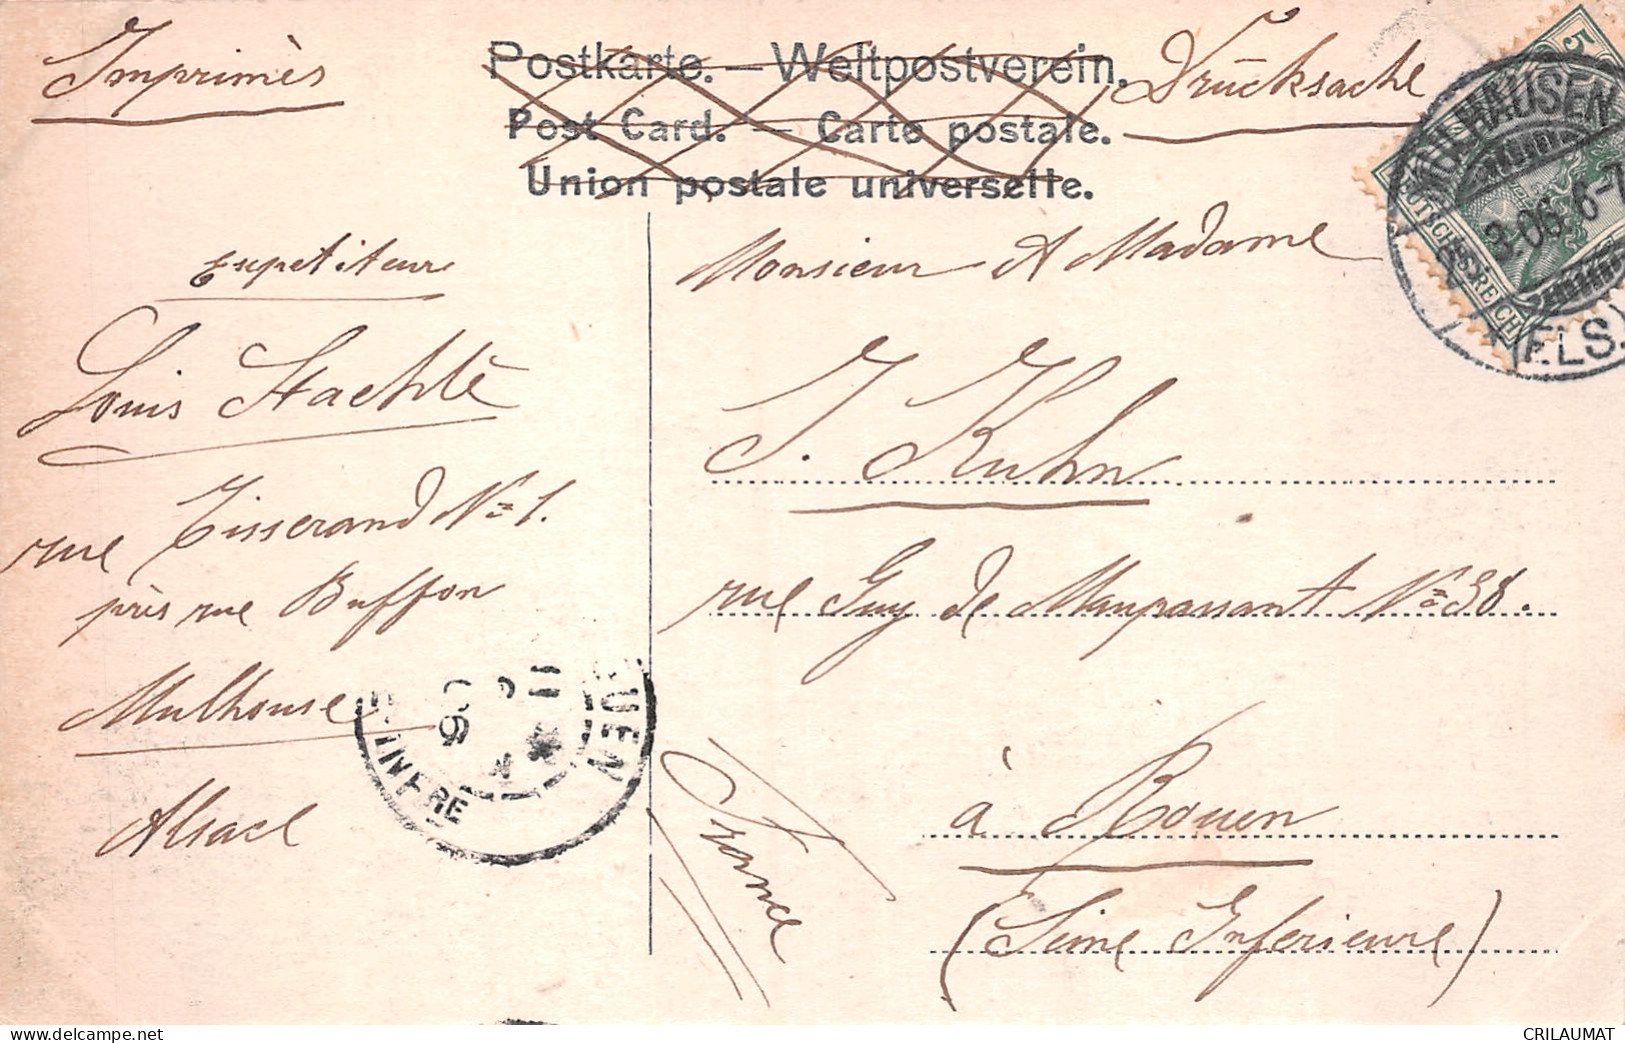 Imprimès
Postkarte. — Weltpostverein.
Drucksache
Post Card. — Carte postale.
Union postale universelle.
MÜLHAUSEN
3.06.6-7
(ELS.)
DEUTSCHES REICH
5
Monsieur & Madame
J. Kuhn
rue Guy de Maupassant No 38.
à Rouen
(Seine Inférieure)
France
Expetiteur
Louis Stachlé
rue Tisserand No 1.
près rue Buffon
Mulhouse
Alsace
INFRE
06
11
delcampe.net
CRILAUMAT